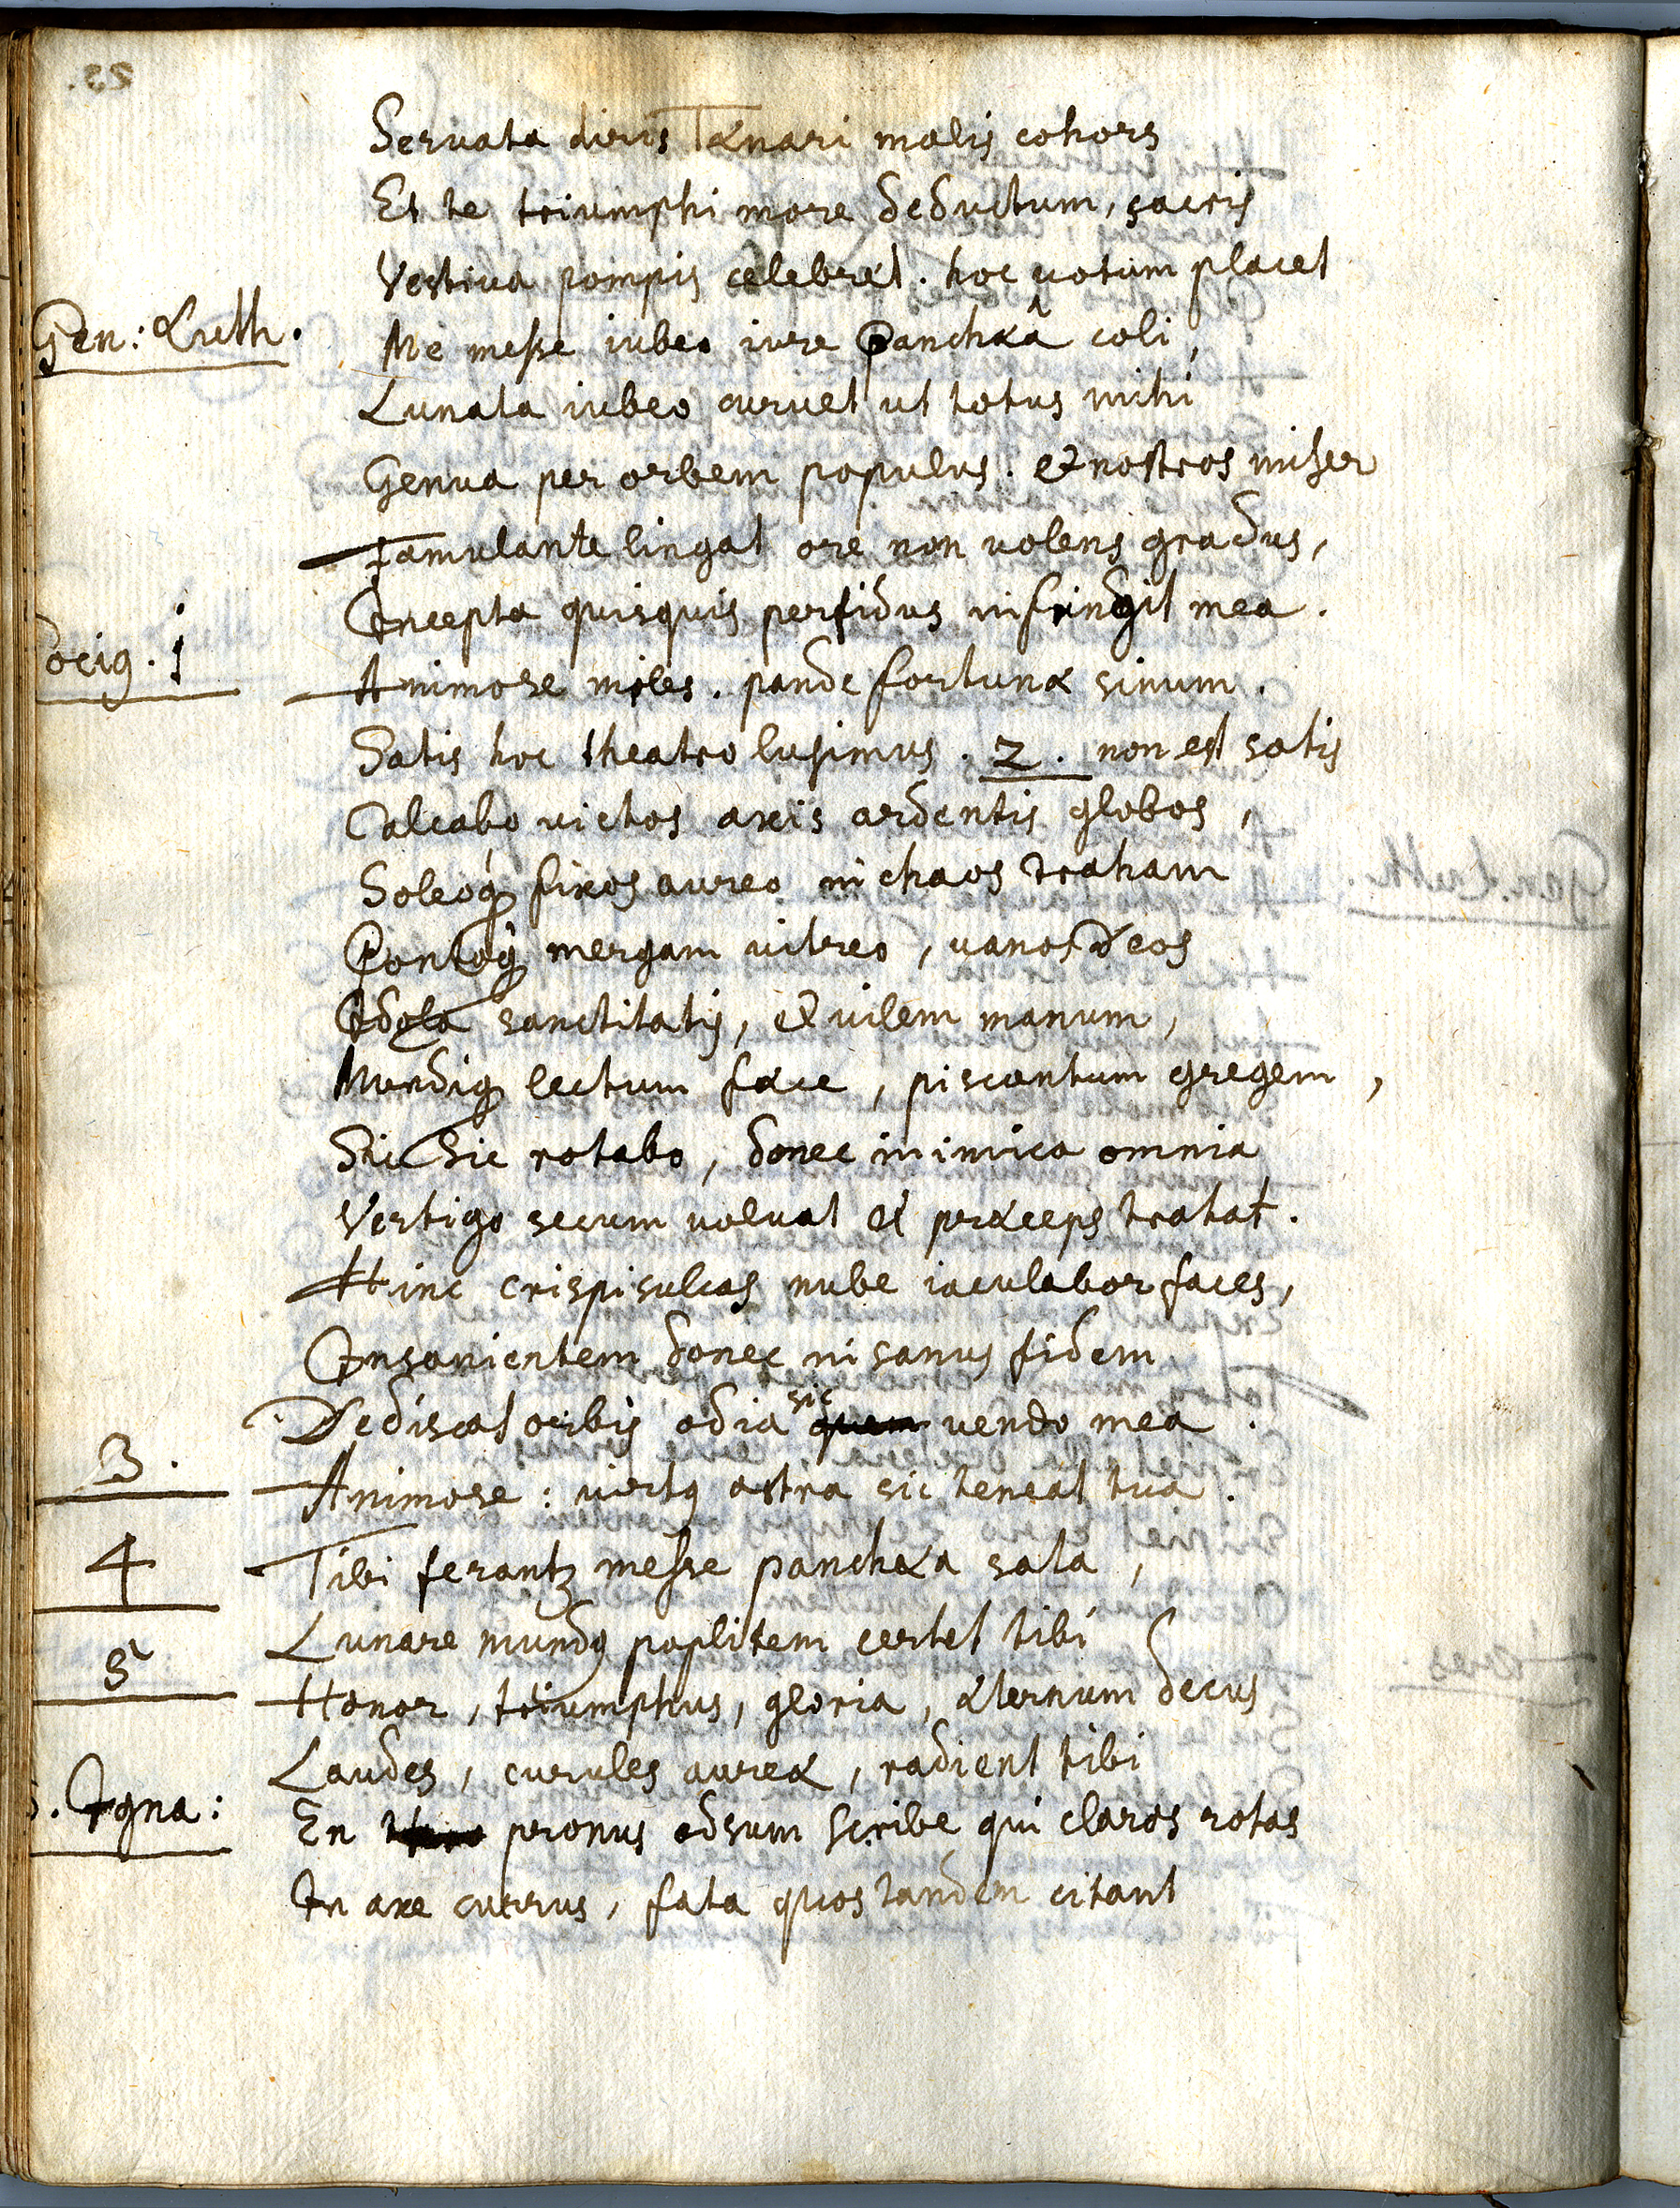 Seruata diris Tænari malis cohors
Et te triumphi more deductum, sacris
Vestiua pompis celebret. hoc uotum placet
Gen: Luth. Me messe iubeo iure Panchæâ coli,
Lunata iubeo curuet ut totus mihi
Genua per orbem populus. et nostros miser
Famulante lingat ore non uolens gradus,
Incepta quisquis perfidus infringit mea.
Socig. 1 Animose miles. pande fortunæ sinum.
Satis hoc theatro lusimus. 2. non est satis
Calcabo victos axis ardentis globos,
Soleoq́ fixos aureo in chaos traham
Pontoq́ mergam vitreo, vanos deos
Idola sanctitatis, et uilem manum,
Mundiq lectum fæce, piscantum gregem,
Sic sic rotabo, donec inimica omnia
Vertigo secum voluat et præceps trahat.
Hinc crispisulcas nube iaculabor faces,
Insanientem donec insanus fidem
Dediscat orbis odia sic vendo mea.
3. Animose: virtq astra sic teneat tua.
4 Tibi ferantz messe panchæa sata,
5 Lunare mundq poplitem certet tibi
Honor, triumphus, gloria, æternum decus
Laudes, curules aureæ, radient tibi
S. Igna: En pronus adsum scribe, qui claros rotas
In axe currus, fata quos tandem citant